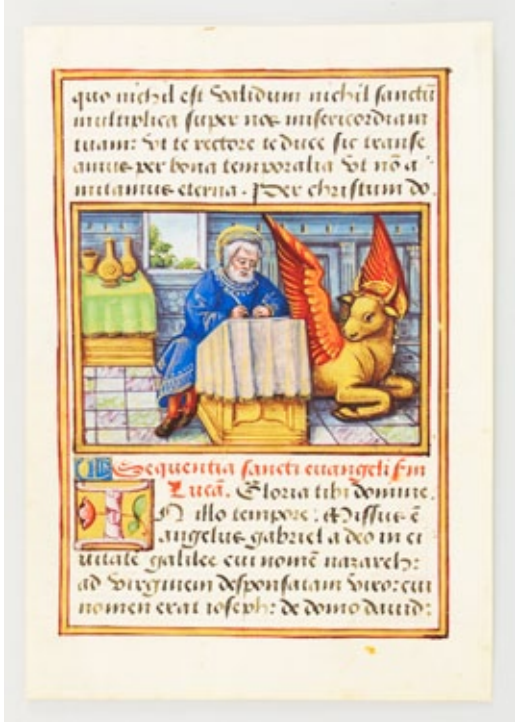 quo nichil est validum nichil sanctū
multiplica super nos misericordiam
tuam: vt te rectore te duce sic transe
amus per bona temporalia vt nō a
mitamus eterna. Per christum do.
Sequentia sancti euangelii sm
Lucā. Gloria tibi domine.
IN illo tempore: Missus ē
angelus gabriel a deo in ci
uitatē galilee cui nomē nazareth:
ad virginem desponsatam viro: cui
nomen erat ioseph: de domo dauid: